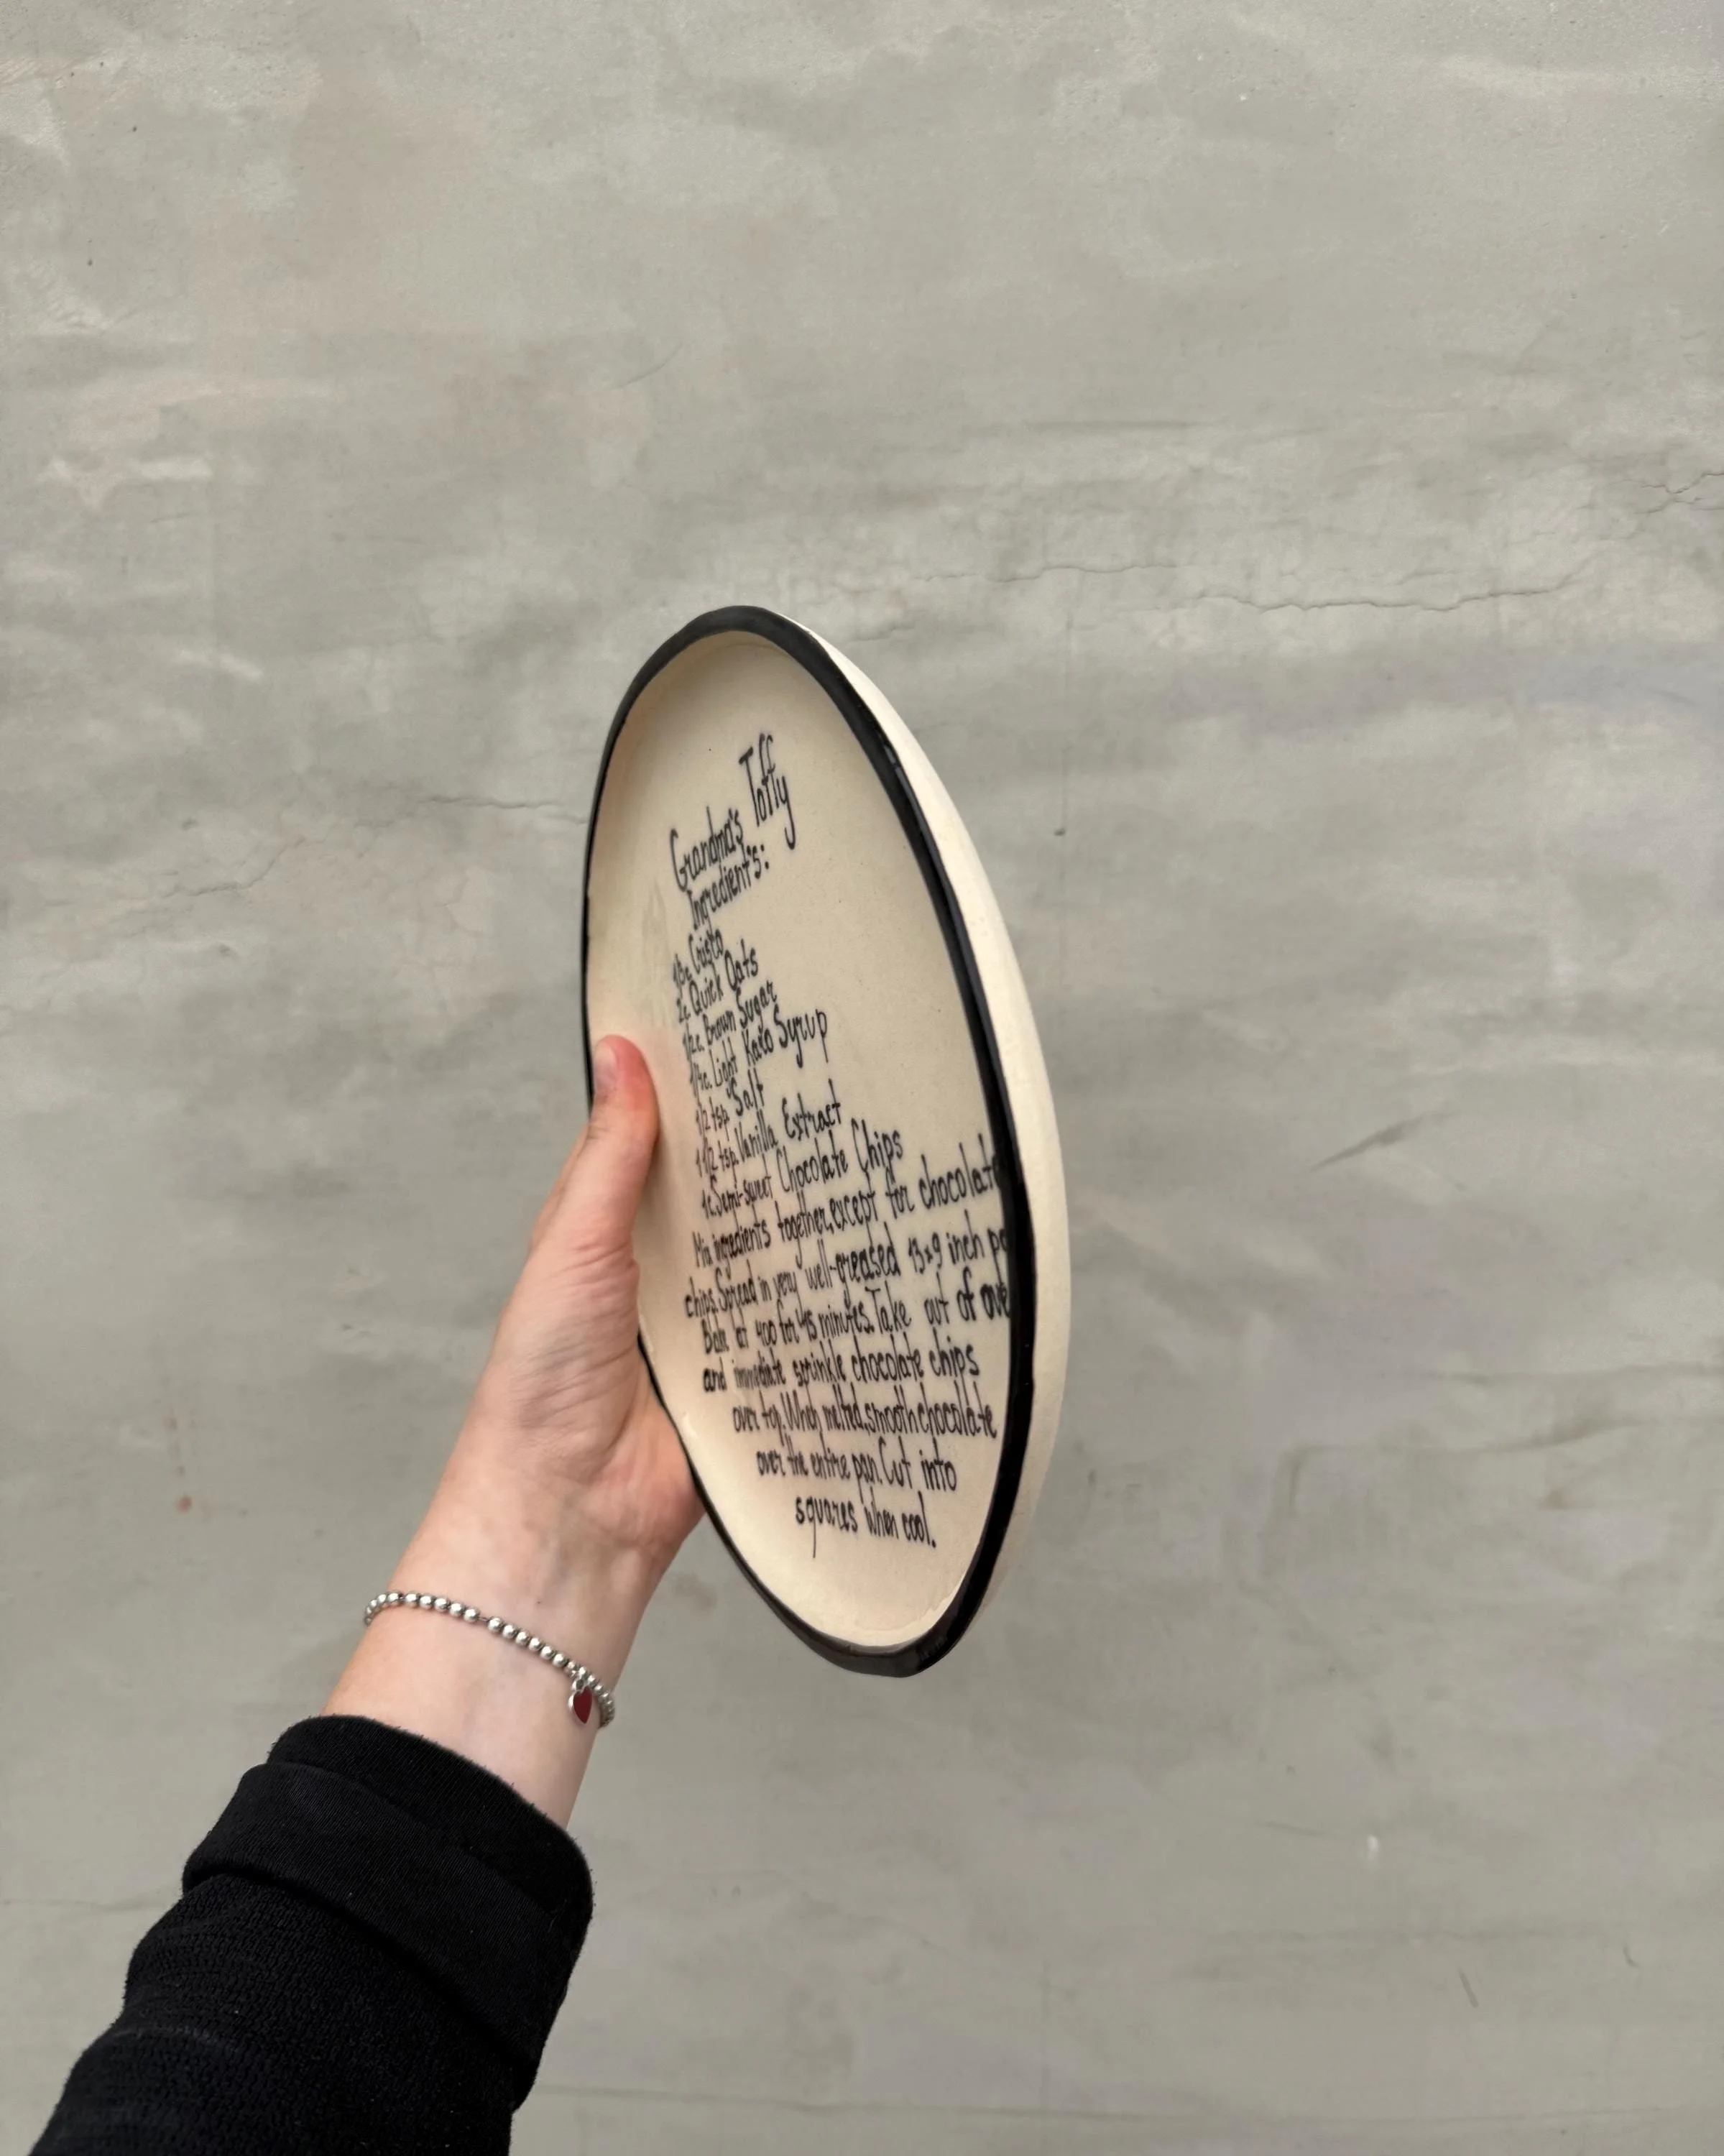 Grandma's Toffy
Ingredient's:
1/3c Cristo
2c Quick Oats
1/2c. Brown Sugar
1/4c. Light Karo Syrup
1/2 tsp Salt
1 1/2 tsp. Vanilla Extract
1c. Semi-sweet Chocolate Chips
Mix ingredients together, except for chocolate
chips. Spread in very well-greased 13x9 inch
Bake at 400 for 45 minutes. Take out of
and immediate sprinkle chocolate chips
over top. When melted, smooth chocolate
over the entire pan. Cut into
squares when cool.